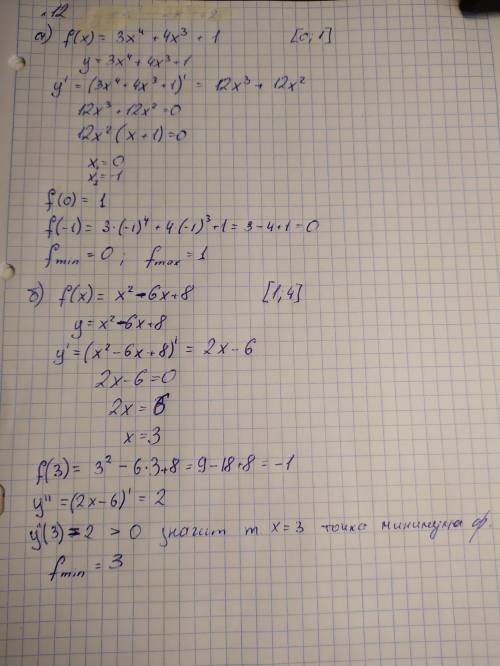 12
а) f(x) = 3x⁴ + 4x³ + 1 [0; 1]
y = 3x⁴ + 4x³ + 1
y' = (3x⁴ + 4x³ + 1)' = 12x³ + 12x²
12x³ + 12x² = 0
12x² (x + 1) = 0
x₁ = 0
x₂ = -1
f(0) = 1
f(-1) = 3·(-1)⁴ + 4(-1)³ + 1 = 3 - 4 + 1 = 0
fmin = 0 ; fmax = 1
б) f(x) = x² - 6x + 8 [1; 4]
y = x² - 6x + 8
y' = (x² - 6x + 8)' = 2x - 6
2x - 6 = 0
2x = 6
x = 3
f(3) = 3² - 6·3 + 8 = 9 - 18 + 8 = -1
y'' = (2x - 6)' = 2
y''(3) = 2 > 0 значит т x = 3 точка минимума ф
fmin = 3